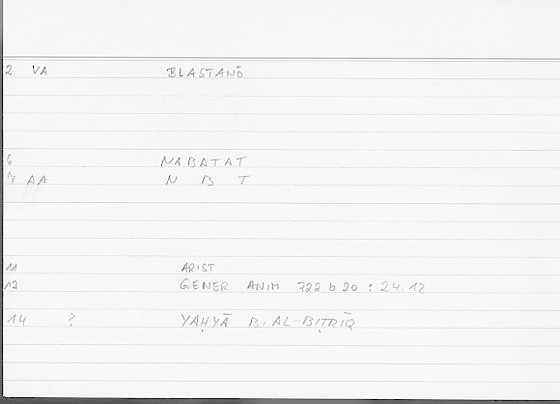 2 VA BLASTANŌ
6 NABATAT
7 AA N B T
11 ARIST
12 GENER ANIM 722 b 20 : 24.12
14 ? YAḤYĀ B. AL-BIṬRĪQ